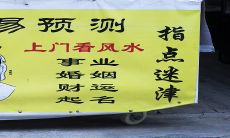 易预测
上门看风水
事业
婚姻
财运
起名
指点迷津